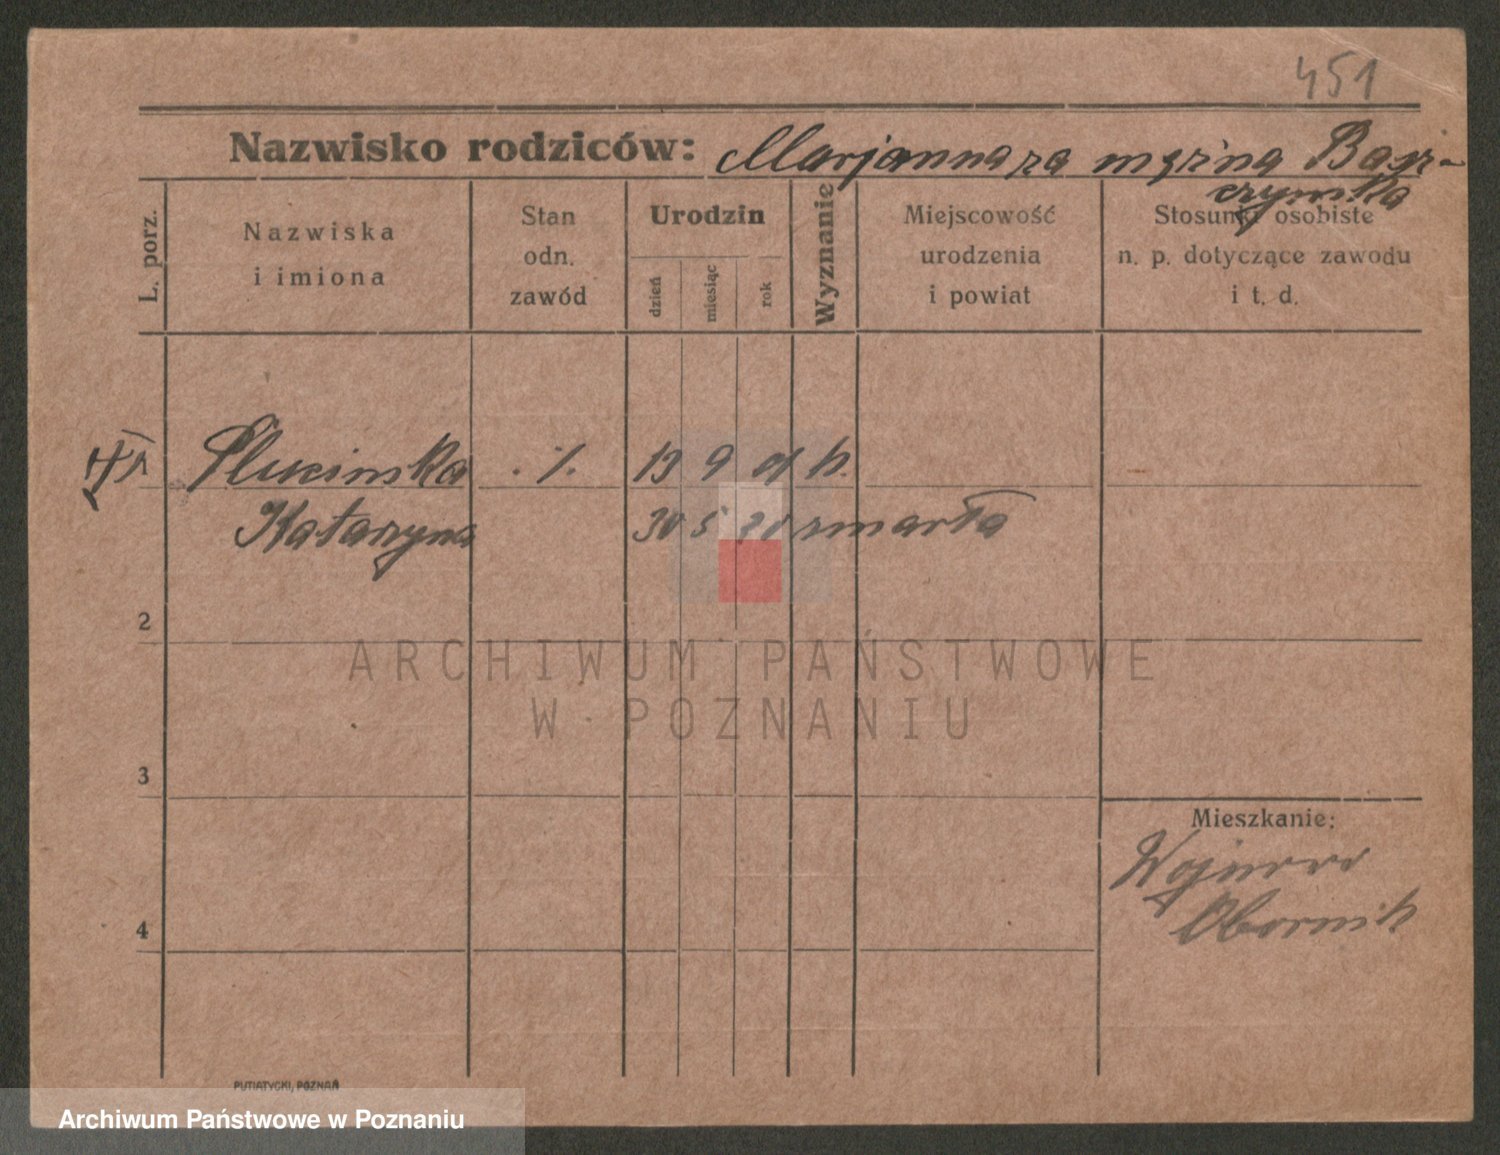 451
Nazwisko rodziców: Marjanna za mężna Baj-
czymska
L. porz.
Nazwiska
i imiona
Stan
odn.
zawód
Urodzin
dzień
miesiąc
rok
Wyznanie
Miejscowość
urodzenia
i powiat
Stosunki osobiste
n. p. dotyczące zawodu
i t. d.
Plucinska ./. 13 9 k.
Katarzyna 30 5 zmarła
2
ARCHIWUM PAŃSTWOWE
W POZNANIU
3
Mieszkanie:
Wojnowo
Obornik
4
PUTIATYCKI, POZNAŃ
Archiwum Państwowe w Poznaniu